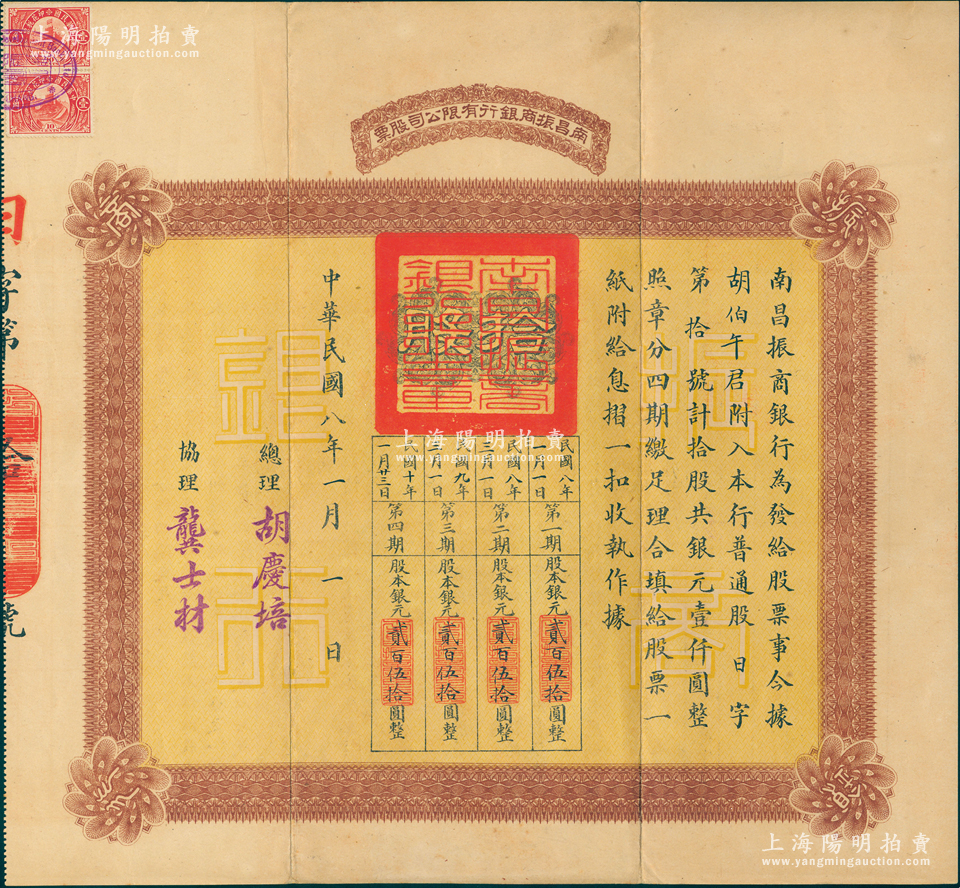 上海陽明拍賣
www.yangmingauction.com
南昌振商銀行有限公司股票
振
商
銀
行
南昌振商銀行為發給股票事今據
胡伯午君附入本行普通股日字
第拾號計拾股共銀元壹仟圓整
照章分四期繳足理合填給股票一
紙附給息摺一扣收執作據
拾股
民國八年二月一日
第一期
股本銀元貳百伍拾圓整
民國八年三月一日
第二期
股本銀元貳百伍拾圓整
民國九年三月一日
第三期
股本銀元貳百伍拾圓整
民國十年一月廿三日
第四期
股本銀元貳百伍拾圓整
中華民國八年一月一日
總理 胡慶培
協理 龔士材
振商
銀行
上海陽明拍賣
www.yangmingauction.com